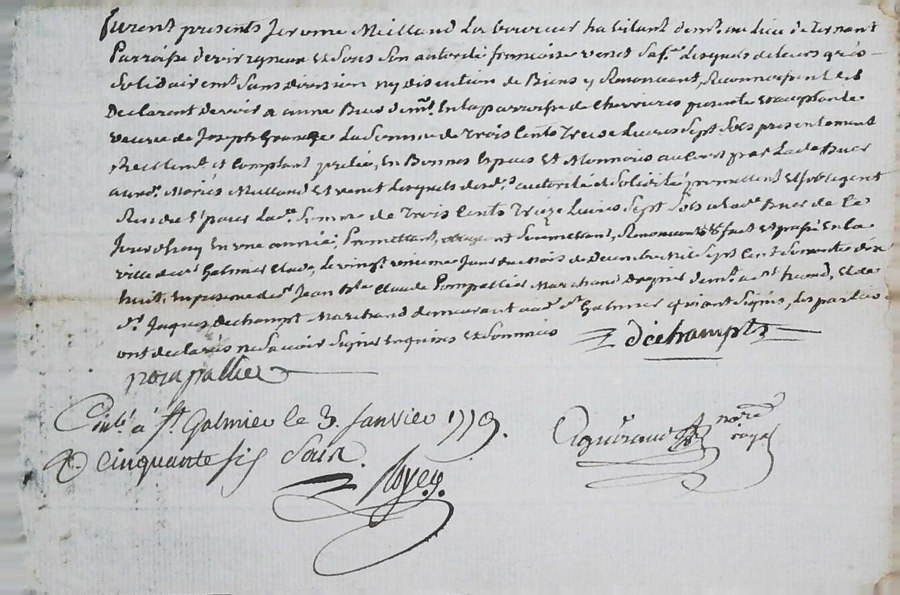 furent presents Jerome Meilland Laboureur habitant demt. au Lieu de Ternant
Parroisse de virigneux et Sous Son autorité francoise venet Sa fe. Lesquels de leurs grés
Solidairemt. Sans division ny discution de Biens y Renoncant, Reconnoissent et
Declarent devoir a anne Buer demt. En la parroisse de Chevrieres presente et acceptante
veuve de Joseph Grange La Somme de Trois Cents Treize Livres Sept Sols presentement
Reellemt. et Comptant pretée, En Bonnes Especes et Monnoies au Cours par Ladte. Buer
auxd. Mariés Meilland et venet Lesquels desd. autorité et Solidité promettent et s'obligent
Rendre et payer Lade. Somme de Trois Cents Treize Livres Sept Sols a Lade. Buer de Ce
Jourdhuy En une année, Promettant, obligeant Soumettant, Renoncant &a fait et passé En la
ville de st. Galmier Etude, Le vingt unieme Jour du Mois de Decembre Mil Sept Cent Soixante dix
huit, En presence de sr. Jean Bte. Claude Pompallier Marchand Drapier demt. a st. , et de
sr. Jaques Dechampt Marchand demeurant aud. st. Galmier qui ont Signés, Les parties
ont declarés ne Savoir Signer Enquises et Sommées
Déchampts
pompallier
Conlé. á st. Galmier le 3. Janvier 1779.
R. cinquante six Sols.
Royey.
nore.
royal